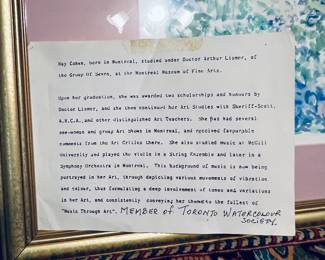 May Cohen, born in Montreal, studied under Doctor Arthur Lismer, of
the Group Of Seven, at the Montreal Museum of Fine Arts.
Upon her graduation, she was awarded two scholarships and honours by
Doctor Lismer, and she then continued her Art Studies with Sheriff-Scott,
A.R.C.A., and other distinguished Art Teachers. She has had several
one-woman and group Art Shows in Montreal, and received favourable
comments from the Art Critics there. She also studied Music at McGill
University and played the violin in a String Ensemble and later in a
Symphony Orchestra in Montreal. This background of music is now being
portrayed in her Art, through depicting various movements of vibration
and colour, thus formulating a deep involvement of tones and variations
in her Art, and consistently conveying her themes to the fullest of
"Music Through Art". MEMBER OF TORONTO WATERCOLOUR
SOCIETY.